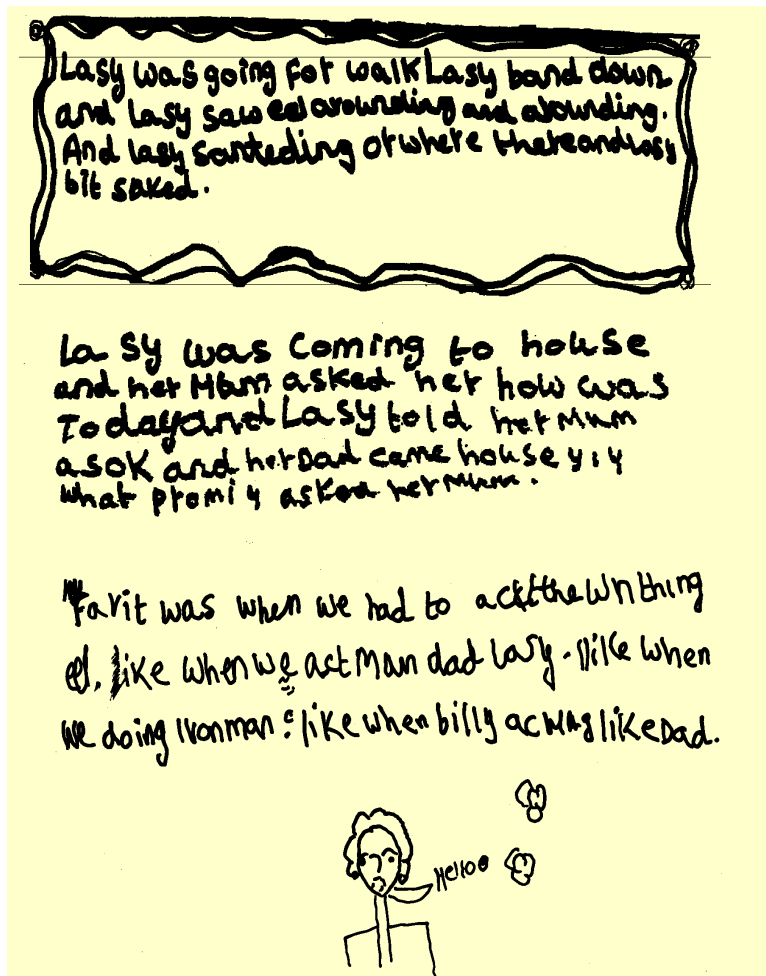 Lasy was going for walk Lasy band down
and lasy saw eel arounding and arounding.
And lasy santeding of where there and lasy
bit saked.
La sy was coming to house
and her Mum asked her how was
Today and Lasy told her Mum
as ok and her Dad came house y i y
what promi y asked her Mum.
my
Favit was when we had to act the Wn thing
eel. like when we act Man dad lasy. I like when
we doing Iron man: like when billy acting like Dad.
Helloe